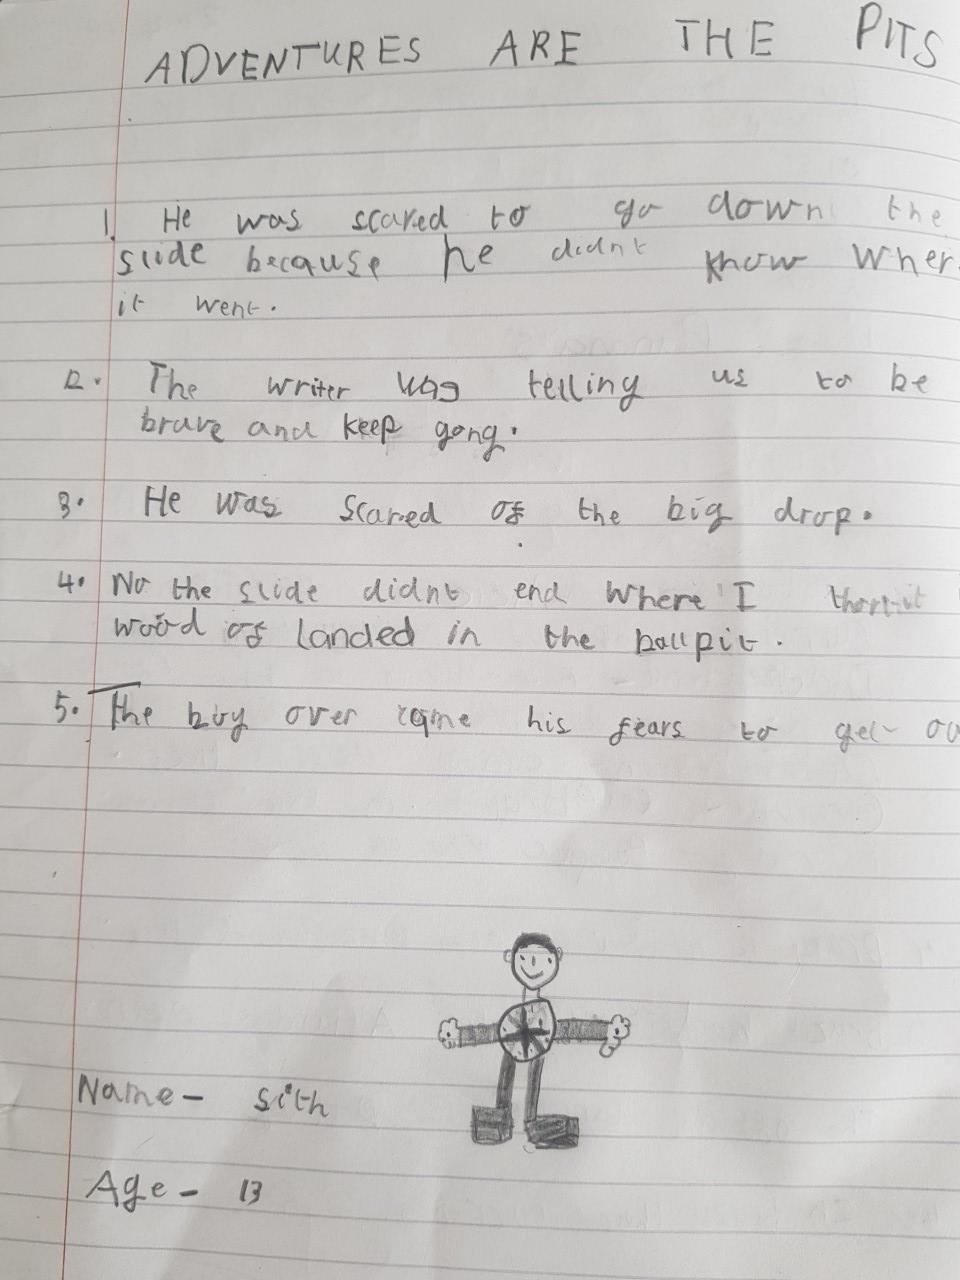 ADVENTURES ARE THE PITS
1. He was scared to go down the
slide because he didnt know wher
it went.
2. The writer was telling us to be
brave and keep gong.
3. He was scared of the big drop.
4. No the slide didnt end where I
of landed in the ballpit.
5. The boy over came his fears to get ou
Name- sith
Age- 13